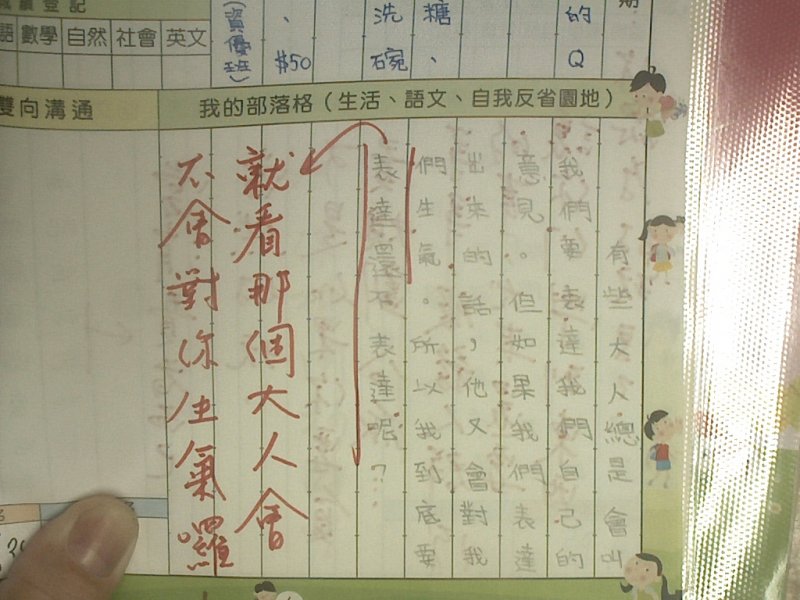 期
的Q
糖、
洗碗
、$50
(資優班)
成績登記
語 數學 自然 社會 英文
雙向溝通
我的部落格（生活、語文、自我反省園地）
有些大人總是會叫
我們要表達我們自己的
意見。但如果我們表達
出來的話，他又會對我
們生氣。所以我到底要
表達還不表達呢？
就看那個大人會
不會對你生氣囉